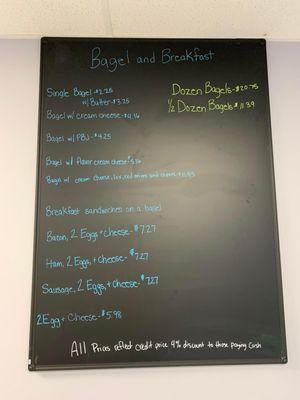 Bagel and Breakfast
Single Bagel - $2.25
w/ Butter - $3.25
Bagel w/ cream cheese - $4.16
Bagel w/ PBJ - $4.25
Bagel w/ flavor cream cheese
Bagel w/ cream cheese, lox, red onions and capers - $11.43
Dozen Bagels - $20.75
1/2 Dozen Bagels $11.39
Breakfast sandwiches on a bagel
Bacon, 2 Eggs + cheese - $7.27
Ham, 2 Eggs, + cheese - $7.27
Sausage, 2 Eggs, + cheese - $7.27
2 Egg + Cheese - $5.98
All Prices reflect credit price 4% discount to those paying cash